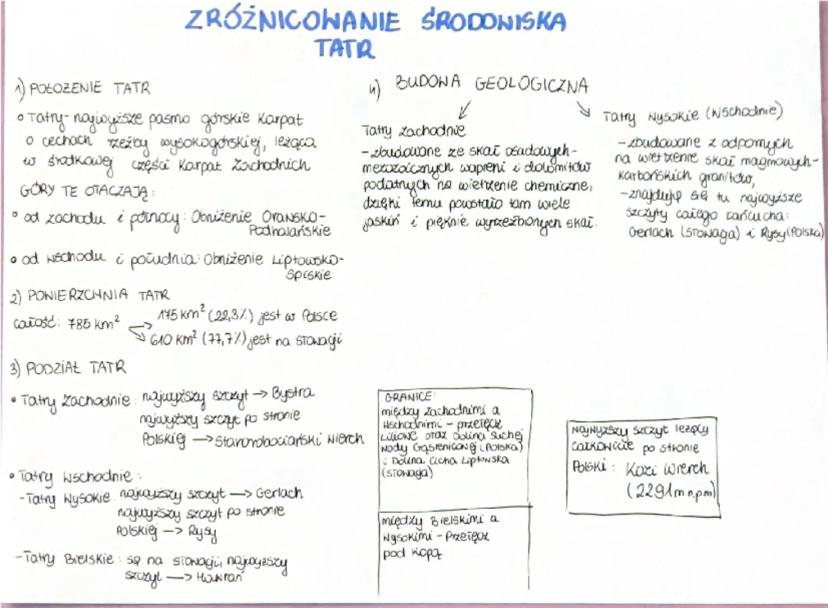 ZRÓŻNICOWANIE ŚRODOWISKA
TATR
1) POŁOŻENIE TATR
• Tatry - najwyższe pasmo górskie Karpat
o cechach rzeźby wysokogórskiej, leżąca
w środkowej części Karpat Zachodnich
GÓRY TE OTACZAJĄ:
• od zachodu i północy: Obniżenie Orawsko-
Podhalańskie
• od wschodu i południa: Obniżenie Liptowsko-
Spiskie
2) POWIERZCHNIA TATR
całość: 785 km² → 175 km² (22,3%) jest w Polsce
→ 610 km² (77,7%) jest na Słowacji
3) PODZIAŁ TATR
• Tatry Zachodnie: najwyższy szczyt → Bystra
najwyższy szczyt po stronie
Polskiej → Starorobociański Wierch
• Tatry Wschodnie:
- Tatry Wysokie: najwyższy szczyt → Gerlach
najwyższy szczyt po stronie
Polskiej → Rysy
- Tatry Bielskie: są na Słowacji, najwyższy
szczyt → Hawrań
4) BUDOWA GEOLOGICZNA
Tatry Zachodnie
- zbudowane ze skał osadowych -
mezozoicznych wapieni i dolomitów
podatnych na wietrzenie chemiczne,
dzięki temu powstało tam wiele
jaskiń i pięknie wyrzeźbionych skał.
Tatry Wysokie (Wschodnie)
- zbudowane z odpornych
na wietrzenie skał magmowych -
karbońskich granitów,
- znajdują się tu najwyższe
szczyty całego łańcucha:
Gerlach (Słowacja) i Rysy (Polska)
GRANICE:
między Zachodnimi a
Wschodnimi - przełęcz
Liliowe oraz Dolina Suchej
Wody Gąsienicowej (Polska)
i Dolina Cicha Liptowska
(Słowacja)
między Bielskimi a
Wysokimi - Przełęcz
pod Kopą
Najwyższy szczyt leżący
całkowicie po stronie
Polski: Kozi Wierch
(2291m n.p.m)